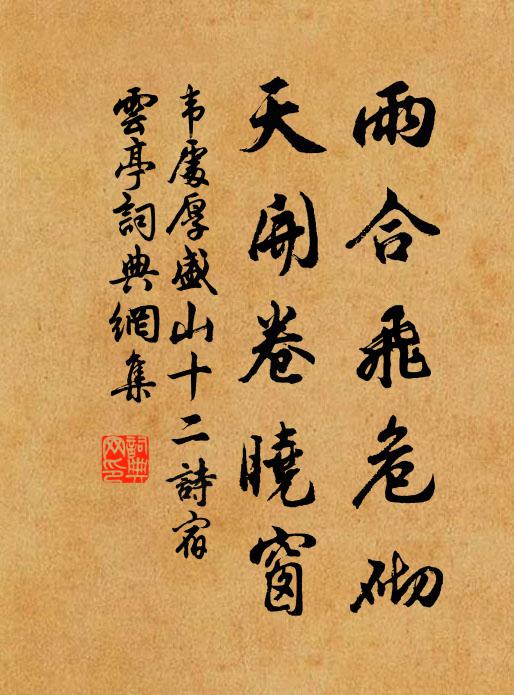 雨合飛危砌
天開卷曉窗
韦處厚盛山十二詩宿
雲亭詞典網集
詞典网印